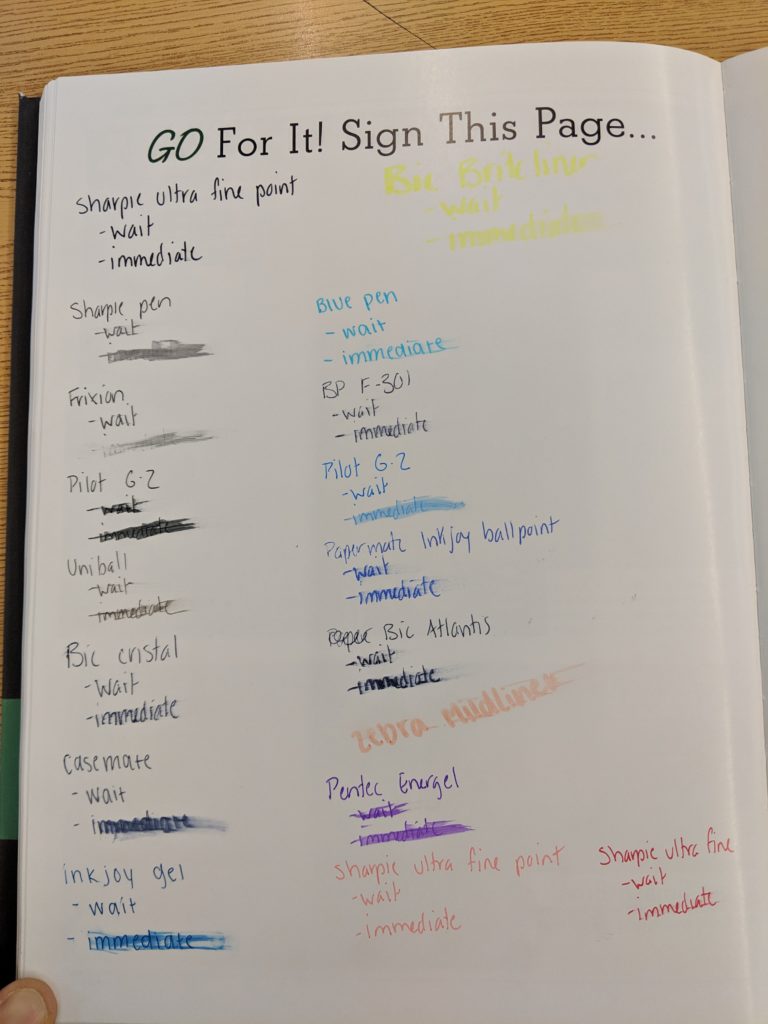 GO For It! Sign This Page...
Sharpie ultra fine point
- wait
- immediate
Sharpie pen
- wait
Frixion
- wait
- immediate
Pilot G-2
- wait
- immediate
Uniball
- wait
- immediate
Bic cristal
- wait
- immediate
Casemate
- wait
- immediate
inkjoy gel
- wait
- immediate
Bic Brite liner
- wait
- immediate
Blue pen
- wait
- immediate
BP F-301
- wait
- immediate
Pilot G-2
- wait
- immediate
Papermate Inkjoy ballpoint
- wait
- immediate
Bic Atlantis
- wait
- immediate
Zebra Mildliner
Pentec Energel
- wait
- immediate
Sharpie ultra fine point
- wait
- immediate
Sharpie ultra fine
- wait
- immediate